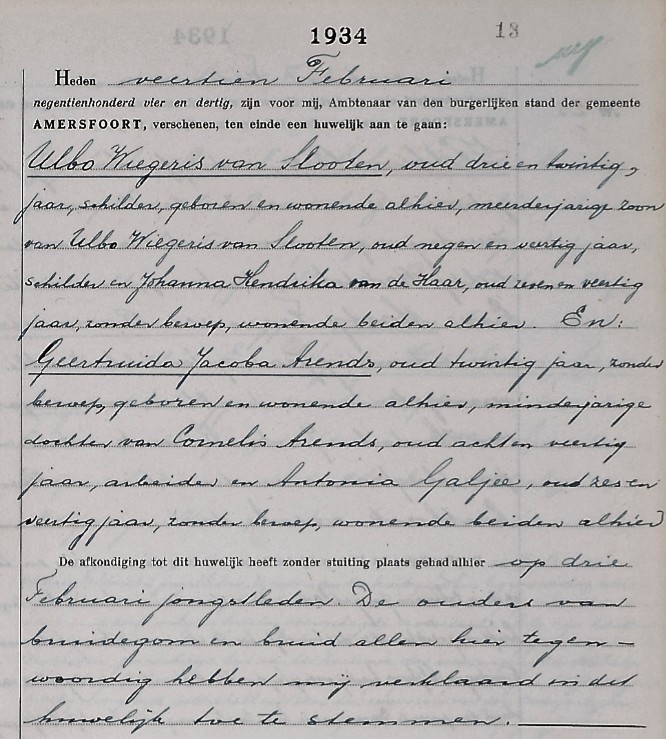 1934
13
Heden veertien Februari
negentienhonderd vier en dertig, zijn voor mij, Ambtenaar van den burgerlijken stand der gemeente
AMERSFOORT, verschenen, ten einde een huwelijk aan te gaan:
Ulbo Wiegeris van Slooten, oud drie en twintig,
jaar, schilder, geboren en wonende alhier, meerderjarige zoon
van Ulbo Wiegeris van Slooten, oud negen en veertig jaar,
schilder en Johanna Hendrika van de Haar, oud zeven en veertig
jaar, zonder beroep, wonende beiden alhier. En:
Geertruida Jacoba Arends, oud twintig jaar, zonder
beroep, geboren en wonende alhier, minderjarige
dochter van Cornelis Arends, oud acht en veertig
jaar, arbeider en Antonia Galjee, oud zes en
veertig jaar, zonder beroep, wonende beiden alhier
De afkondiging tot dit huwelijk heeft zonder stuiting plaats gehad alhier op drie
Februari jongstleden. De ouders van
bruidegom en bruid allen hier tegen-
woordig hebben mij verklaard in dit
huwelijk toe te stemmen.